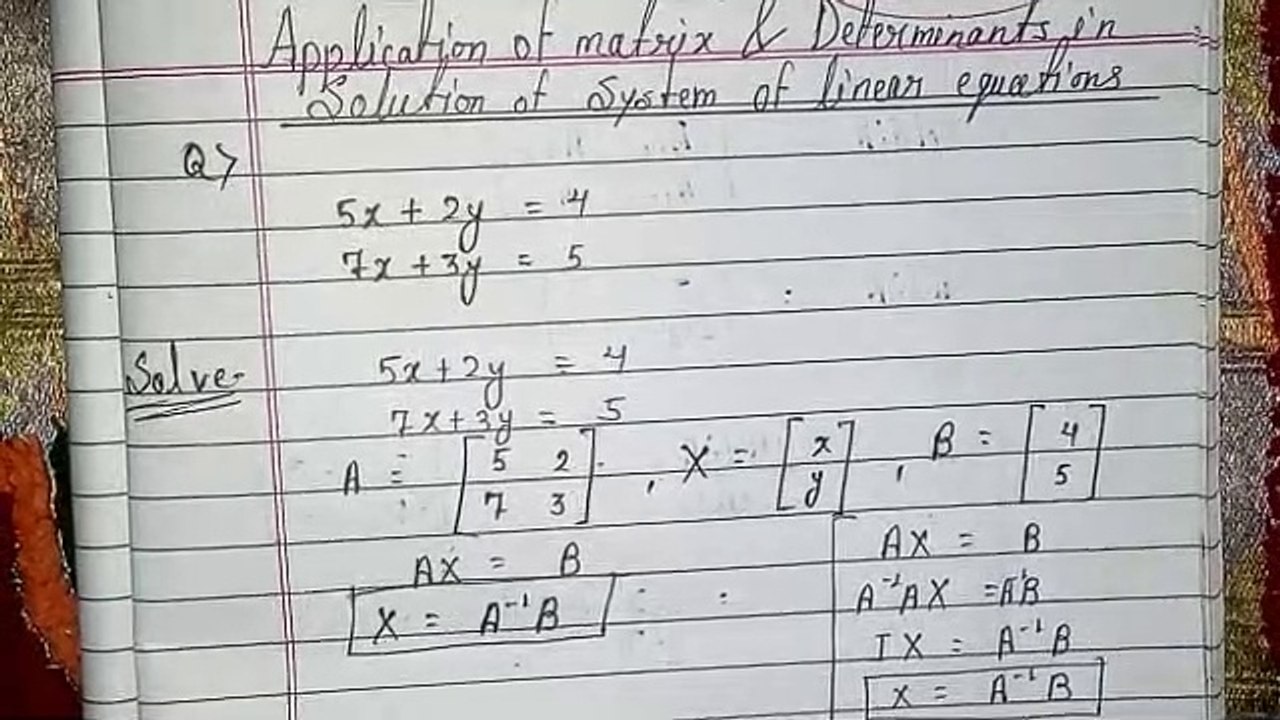 Application of matrix & Determinants in
Solution of System of linear equations
Q>
5x + 2y = 4
7x + 3y = 5
Solve-
5x + 2y = 4
7x + 3y = 5
A = [5 2
7 3] , X = [x
y] , B = [4
5]
AX = B
X = A⁻¹B
AX = B
A⁻¹AX = A⁻¹B
IX = A⁻¹B
X = A⁻¹B